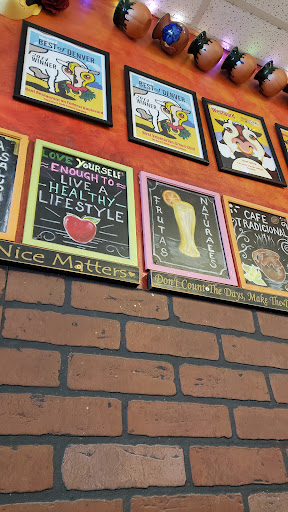 BEST OF DENVER
WINNER
BEST OF DENVER
WINNER
Westword
LOVE YOURSELF
ENOUGH TO
LIVE A
HEALTHY
LIFESTYLE
FRUTAS
NATURALES
CAFE
TRADICIONAL
Nice Matters
Don't Count The Days, Make The